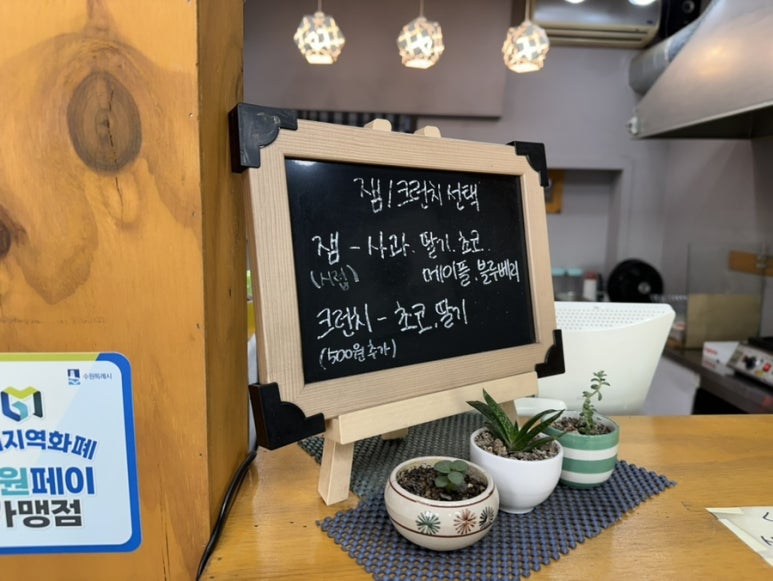 잼 / 크런치 선택
잼 - 사과. 딸기. 초코.
(시럽) 메이플. 블루베리
크런치 - 초코. 딸기
(500원 추가)
수원특례시
지역화폐
원페이
가맹점